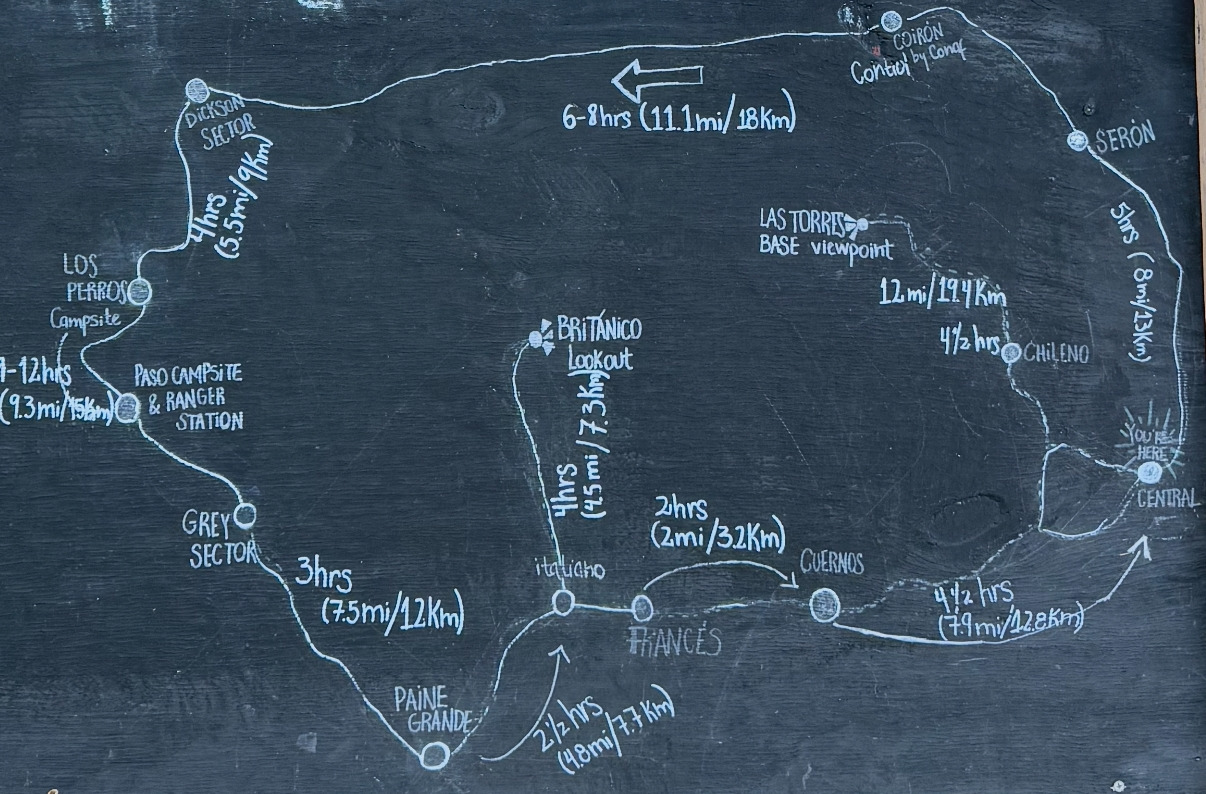 COIRÓN
Control by Conaf
DICKSON
SECTOR
6-8hrs (11.1mi/18Km)
SERÓN
4hrs
(5.5mi/9Km)
LAS TORRES
BASE viewpoint
5hrs (8mi/13Km)
LOS
PERROS
Campsite
12mi/19.4Km
4½hrs
CHILENO
BRITÁNICO
Lookout
-12hrs
(9.3mi/15Km)
PASO CAMPSITE
& RANGER
STATION
4hrs
(4.5mi/7.3Km)
YOU'RE
HERE
CENTRAL
GREY
SECTOR
2hrs
(2mi/3.2Km)
3hrs
(7.5mi/12Km)
italiano
CUERNOS
FRANCÉS
4½hrs
(7.9mi/12.8Km)
PAINE
GRANDE
2½hrs
(4.8mi/7.7Km)